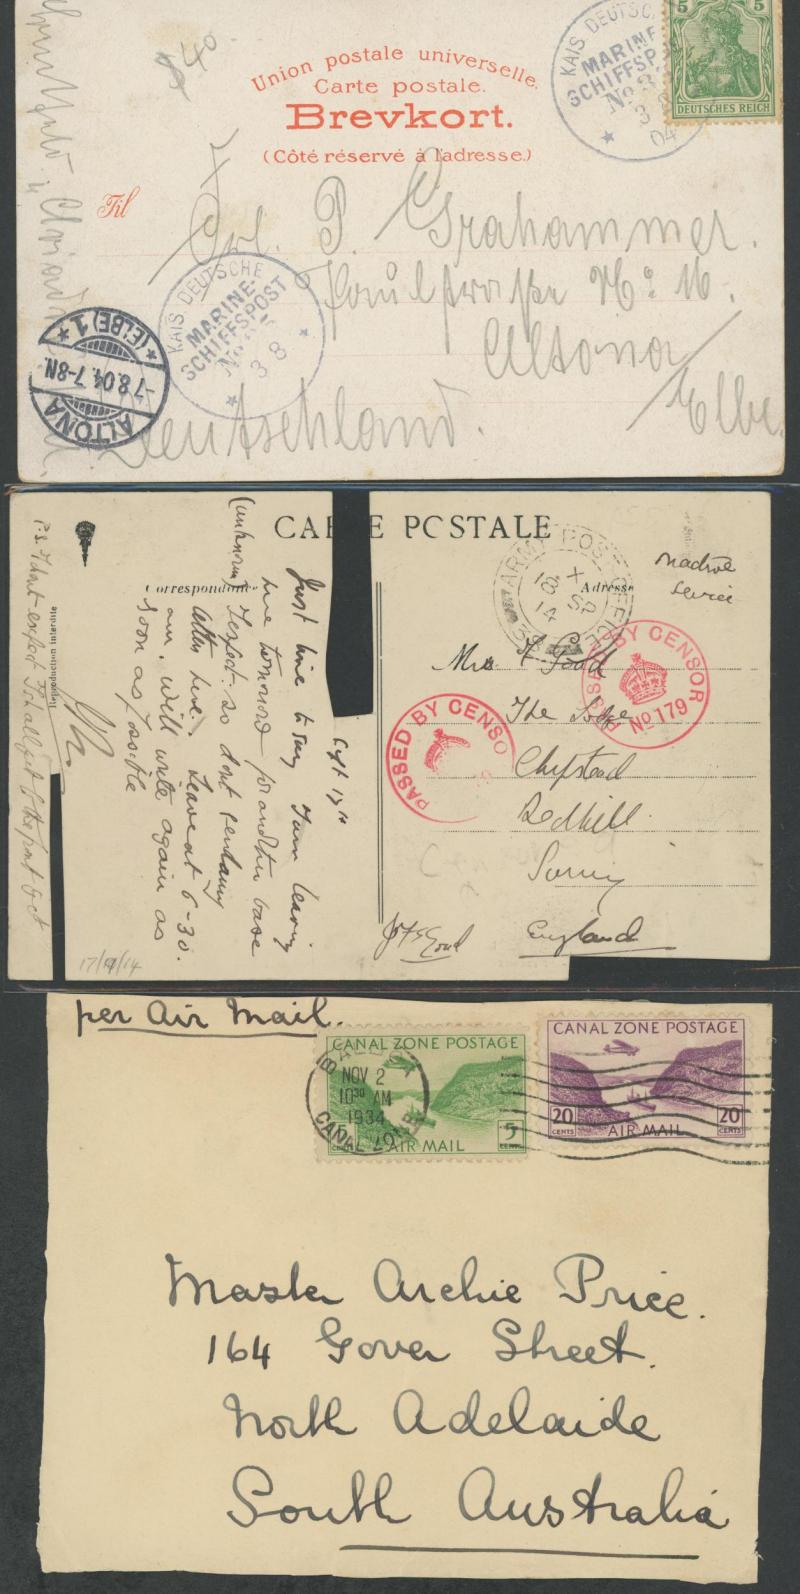 40
Union postale universelle.
Carte postale.
Brevkort.
(Côté réservé à l'adresse.)
KAIS. DEUTSCHE
MARINE-
SCHIFFSPOST
No
3 8
04
5 5
DEUTSCHES REICH
Til
Frl. P. Grahammer.
No. 16.
Altona
/Elbe.
Deutschland.
KAIS. DEUTSCHE
MARINE-
SCHIFFSPOST
No 35
3 8
ALTONA
-7.8.04.7-8N.
* (ELBE) 1 *
CARTE POSTALE
Correspondance
Adresse
Reproduction interdite
Sept 17th
Just time to say I am leaving
here tomorrow for another base
(unknown) I expect. so dont send any
letters here. Leave at 6-30.
am. will write again as
soon as possible
P.S. I dont expect I shall get
17/9/14
ARMY POST OFFICE
X
18 SP
14
active
service
PASSED BY CENSOR
No 179
PASSED BY CENSO
Mrs F Good
The
Chipstead
Redhill
Surrey
England
per Air Mail.
CANAL ZONE POSTAGE
5 CENTS
AIR MAIL
CANAL ZONE POSTAGE
20 CENTS
20 CENTS
AIR MAIL
BALBOA
NOV 2
10 30 AM
1934
CANAL ZONE
Master Archie Price.
164 Gover Street.
North Adelaide
South Australia